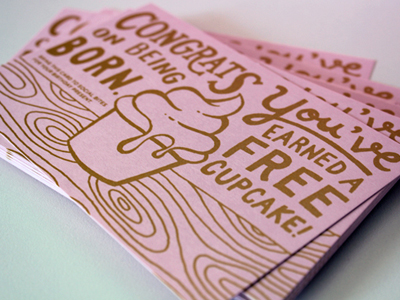 CONGRATS
ON BEING
BORN.
You've
EARNED A
FREE
CUPCAKE!